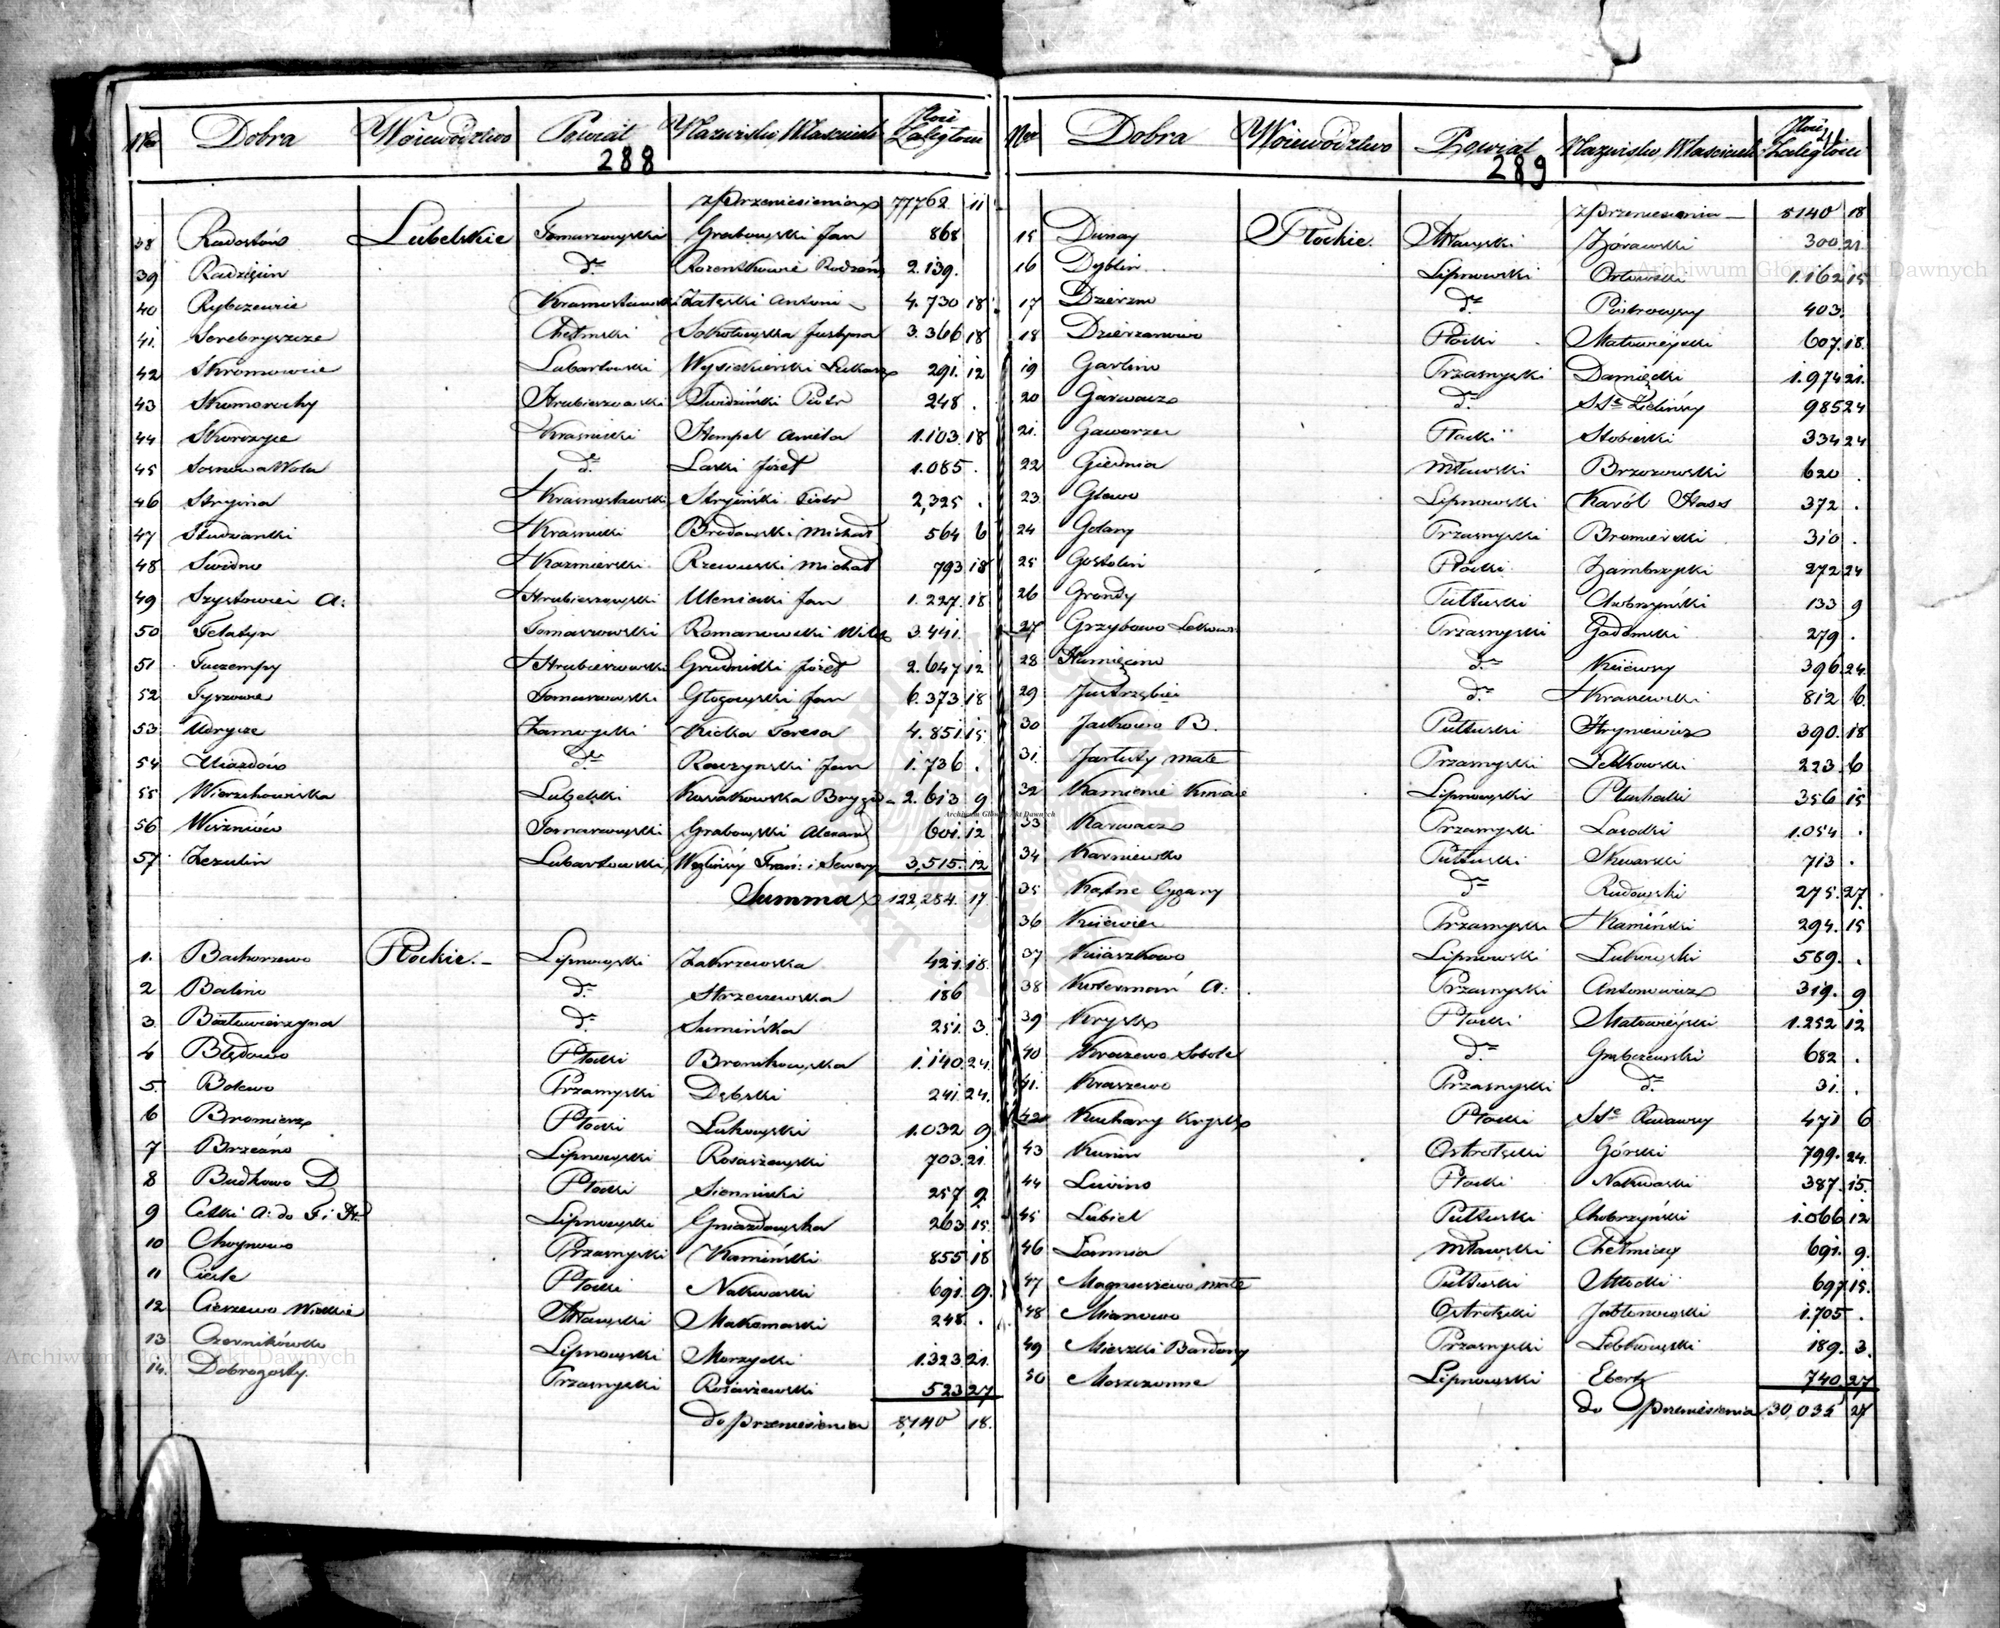 Nro Dobra Województwo Powiat Nazwisko Właściciela Ilość Zaległości
288
z przeniesienia 77762 11
38 Radostów Lubelskie Tomaszowski Grabowski Jan 868
39 Radzięcin do Rodzeń 2.139.
40 Rybczewice Krasnostawski Załęski Antoni 4.730 18
41. Serebryszcze Chełmski Sokołowska Justyna 3.366 18
42 Skromowice Lubartowski Łukasz 291. 12
43 Skomorochy Hrubieszowski Świdziński Piotr 248 .
44 Skorczyce Kraśnicki Hempel Aniela 1.103. 18
45 Sosnowa Wola do Laski Józef 1.085 .
46 Stryjna Krasnostawski Stryjiński Piotr 2,325 .
47 Studzianki Kraśnicki Brodowski Michał 564 6
48 Swidno Kazimierski Rzewuski Michał 793 18
49 Szystowice A: Hrubieszowski Ulenicki Jan 1.227. 18
50 Telatyn Tomaszowski Romanowski 3.441.
51 Tuczempy Hrubieszowski Grudnicki Józef 2.647 12
52 Tyszowce Tomaszowski Głogowski Jan 6.373 18
53 Udrycze Zamoyski Kicka Teresa 4.851. 15
54 Uiazdów do Raczynski Jan 1.736 .
55 Wierzchowiska Lubelski Kossakowska Brygida 2.613 9
56 Wiszniów Tomaszowski Grabowski Alexand 601. 12
57 Zezulin Lubartowski Węgliński Fran: i Sewery 3,515. 12
Summa 122,284. 17
1. Bachorzewo Płockie. Lipnowski Zakrzewska 421. 18.
2 Balin do Strzeszewska 186
3. Białowierzyna do Sumińska 251. 3.
4 Błędowo Płocki Bronikowska 1.140. 24.
5. Bolewo Przasnyski Dębski 241. 24.
6 Bromierz Płocki Łukowski 1.032 9
7 Brzeźno Lipnowski Rościszewski 703. 21.
8 Budkowo D Płocki Siennicki 257 9.
9 Celki A: do F: H. Lipnowski Gniazdowska 263 15.
10 Choynowo Przasnyski Kamiński 855 18
11 Ciesle Płocki Nakwaski 691. 9.
12 Cieszewo Wielkie Mławski Makomaski 248 .
13 Czernikówko Lipnowski Morzycki 1.323. 21.
14. Dobrogosty. Przasnyski Rościszewski 523 27
do przeniesienia 8,140 18.
Nro Dobra Województwo Powiat Nazwisko Właściciela Ilość Zaległości
289
z przeniesienia 8140 18
15 Dunay Płockie. Mławski Żórawski 300. 21.
16 Dyblin Lipnowski Orłowski 1.162 15
17 Dzierzno do Piotrowscy 403.
18 Dzierzanowo Płocki Małowieyski 607. 18.
19 Garlino Przasnyski Damięcki 1.974 21.
20 Garwarz do SSre Zielińscy 985 24
21. Gaworzec Płocki Stobiecki 334 24
22 Giednia Mławski Brzozowski 620 .
23 Glewo Lipnowski Karól Haas 372 .
24 Golany Przasnyski Bromirski 310 .
25 Gostolin Płocki Zambrzycki 272 24
26 Grondy Pułtuski Chobrzyński 133 9
27 Grzybowo Przasnyski Gadomski 279 .
28 Humięcino do Kiiewscy 396. 24.
29 Jastrzębiec do Kraszewski 812 6.
30 Jackowo B. Pułtuski Hryniewicz 390. 18
31. Jarluty małe Przasnyski Lelkowski 223. 6
32 Kamienie Lipnowski Płuchacki 356 15
33 Karwacz Przasnyski Lasocki 1.054 .
34 Karniewko Pułtuski Skwarski 713 .
35 Kątne Cygany do Rudowski 275. 27.
36 Kiiewice Przasnyski Kamiński 294. 15
37 Kiiaszkowo Lipnowski Łukowski 569. .
38 Kosterman A: Przasnyski Antonowicz 319. 9
39 Krysk Płocki Małowieyski 1.252 12
40 Kraszewo Sobole do Grabczewski 682 .
41. Kraszewo Przasnyski do 31. .
42 Kuchary Krysk Płocki SSre 471 6
43 Kunin Ostrołęcki Górski 799. 24.
44 Luwino Płocki Nakwaski 387. 15.
45 Lubiel Pułtuski Chobrzyński 1.066 12
46 Łomnia Mławski Chełmiccy 691. 9.
47 Magnuszewo małe Pułtuski Młocki 697 15.
48 Mianowo Ostrołęcki Jabłonowski 1.705 .
49 Mieszki Bardony Przasnyski Łebkowski 189. 3.
50 Moszczonne Lipnowski Ebertz 740 27
do przeniesienia 30,035 27
Archiwum Główne Akt Dawnych
Archiwum Główne Akt Dawnych
Archiwum Główne Akt Dawnych